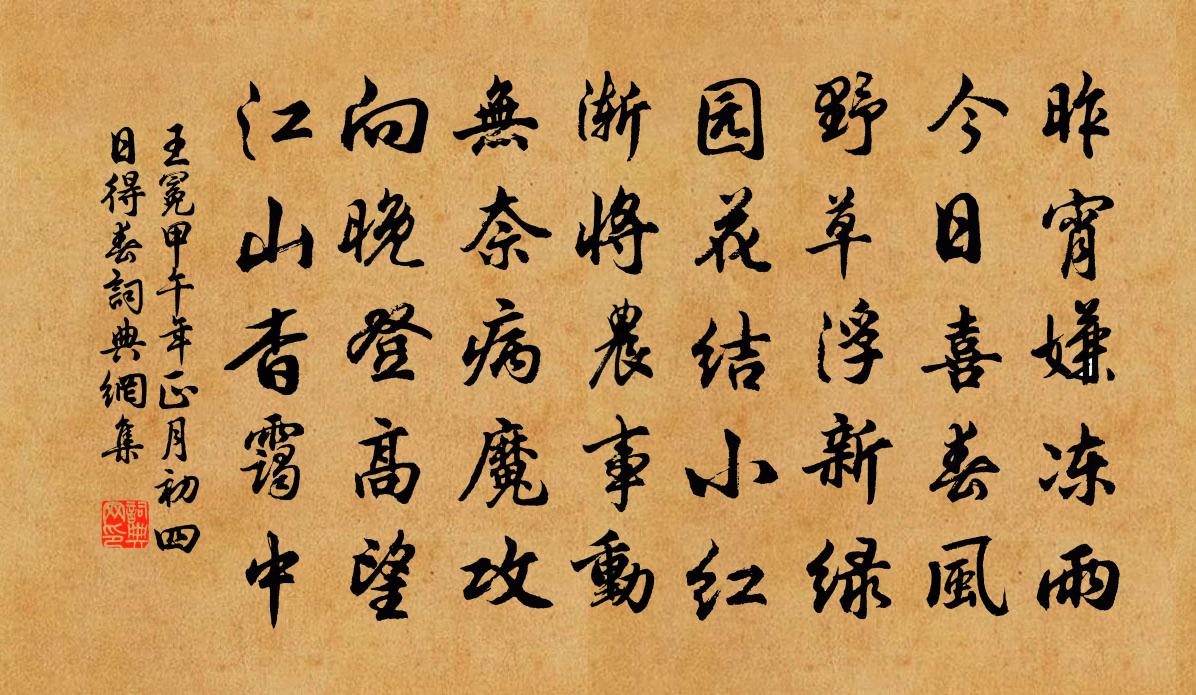 昨宵嫌冻雨
今日喜春风
野草浮新绿
园花结小红
渐将農事動
無奈病魔攻
向晚登高望
江山杳靄中
王冕甲午年正月初四
日得春詞典網集
詞典网印